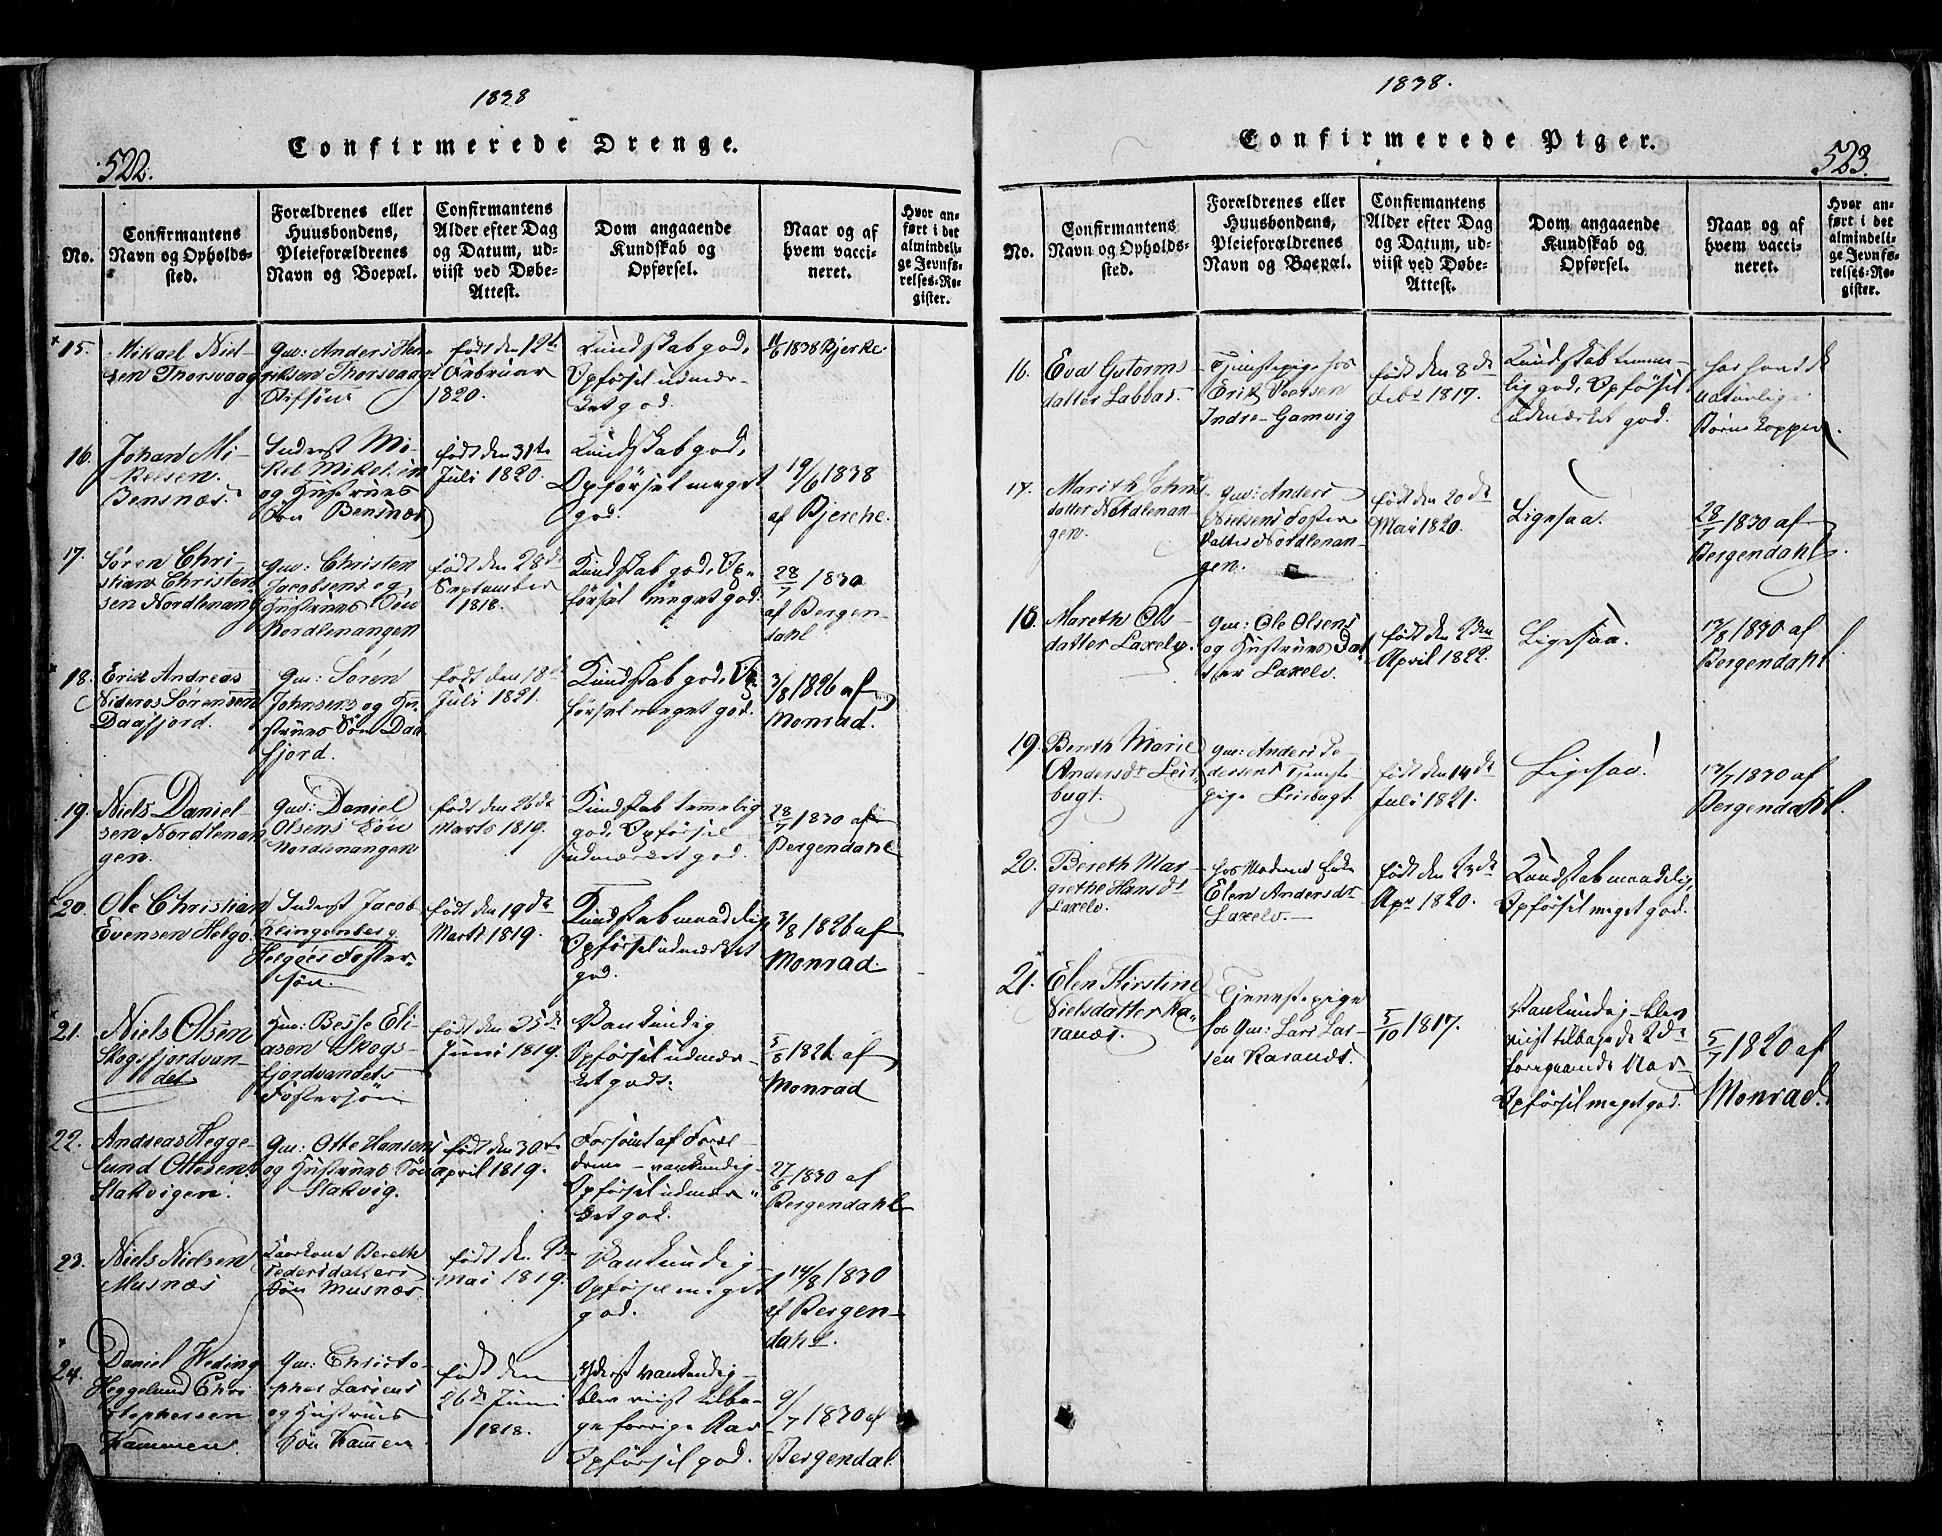 1838
Confirmerede Drenge.
522.
No.
Confirmantens
Navn og Opholds-
sted.
Forældrenes eller
Huusbondens,
Pleieforældrenes
Navn og Boepæl.
Confirmantens
Alder efter Dag
og Datum, ud-
viist ved Døbe-
Attest.
Dom angaaende
Kundskab og
Opførsel.
Naar og af
hvem vacci-
neret.
Hvor an-
ført i det
almindeli-
ge Jevnfø-
relses-Re-
gister.
15.
Mikael Niel-
sen Thorsvaag
Gm: Anders Hen-
riksen Thorsvaags
født den 12te
Februar
1820.
Kundskab god,
Opførsel udmær-
ket god.
11/6 1838 Bjerke
16.
Johan Mi-
kelsen
Bensnæs.
Inderst Mi-
kel Mikelsen
og Hustrues
Søn Bensnæs
født den 31te
Juli 1820.
Kundskab god,
Opførsel meget
god.
19/6 1838
af Bjerche.
17.
Søren Chri-
stian Christen
sen Nordlenang
Gm: Christen
Jacobsens og
Hustrues Søn
Nordlenangen
født den 28de
September
1818.
Kundskab god, Op-
førsel meget god.
28/7 1830
af Bergen-
dahl
18.
Erik Andreas
Nideros Sørensen
Daafjord.
Gm: Søren
Johnsens og Hu-
strues Søn Daa
fjord.
født den 18de
Juli 1821.
Kundskab god, Op-
førsel meget god.
3/8 1826 af
Monrad.
19.
Niels Daniel-
sen Nordlenan
gen.
Gm: Daniel
Olsens Søn
Nordlenangen
født den 26de
Marts 1819.
Kundskab temelig
god, Opførsel
udmærket god.
28/7 1830 af
Bergendahl
20.
Ole Christian
Evensen Helgø.
Inderst Jacob
Klingenberg
Helgøes Foster-
søn.
født den 19de
Marts 1819.
Kundskab maadelig,
Opførsel udmærket
god.
3/8 1826 af
Monrad.
21.
Niels Olsen
Skogsfjordvan-
det
Gm: Besse Eli-
asen Skogs-
fjordvandets
Fostersøn
født den 25de
Juni 1819.
Vankundig
Opførsel udmær-
ket god.
5/8 1826 af
Monrad
22.
Andreas Hegge-
lund Ottesen
Stakvigen.
Gm: Otte Hansens
og Hustrues Søn
Stakvig.
født den 30te
april 1819.
Forsømt af Foræl-
drene – vankundig –
Opførsel udmær-
ket god.
27/6 1830 af
Bergendahl
23.
Niels Nielsen
Musnæs
Bereth
Pedersdatters
Søn Musnæs
født den
Mai 1819.
Vankundig –
Opførsel meget
god.
14/8 1830
af Bergen-
dahl.
24.
Daniel Heding
Heggelund Chri
stophersen
Hammen
Gm: Christo-
pher Larsens
og Hustrues
Søn Hamen
født den
26de Juni
1818.
Yderst vankundig –
blev viist tilba-
ge forrige Aar
Opførsel god.
9/7 1830 af
Bergendal.
1838.
Confirmerede Piger.
523.
No.
Confirmantens
Navn og Opholds-
sted.
Forældrenes eller
Huusbondens,
Pleieforældrenes
Navn og Boepæl.
Confirmantens
Alder efter Dag
og Datum, ud-
viist ved Døbe-
Attest.
Dom angaaende
Kundskab og
Opførsel.
Naar og af
hvem vacci-
neret.
Hvor an-
ført i det
almindeli-
ge Jevnfø-
relses-Re-
gister.
16.
Eva Gutorms
datter Labbas.
Tjenstepige hos
Erik Peersen
Indre-Gamvig
født den 8de
Febr 1817.
Kundskab temme-
lig god, Opførsel
udmærket god.
har havdt
naturlige
Børnekopper.
17.
Marith Johns
datter Nordlenan-
gen.
Gm: Anders
Nielsens Foster
datter Nordlenan-
gen.
født den 20de
Mai 1820.
Ligesaa.
28/7 1830 af
Bergendahl.
18.
Mareth Ols-
datter Laxelv.
Gm: Ole Olsens
og Hustrues Dat
ter Laxelv.
født den 2den
April 1822.
Ligesaa.
13/8 1830 af
Bergendahl.
19.
Bereth Marie
Andersdt Leir
bugt.
Gm: Anders Pe-
dersens Tjenste
pige Leirbugt.
født den 14de
Juli 1821.
Ligesaa!
13/7 1830 af
Bergendahl.
20.
Bereth Mar-
grethe Hansdt
Laxelv.
hos Moderen Enke
Elen Andersdt
Laxelv. –
født den 23de
Apr 1820.
Kundskab maadelig,
Opførsel meget god.
21.
Elen Kirstine
Nielsdatter Ka-
ranæs.
Tjenestepige
hos Gm: Lars Lar-
sen Karanæs.
5/10 1817.
Vankundig – blev
viist tilbage de 2de
foregaaende Aar
Opførsel meget god.
5/7 1820 af
Monrad.